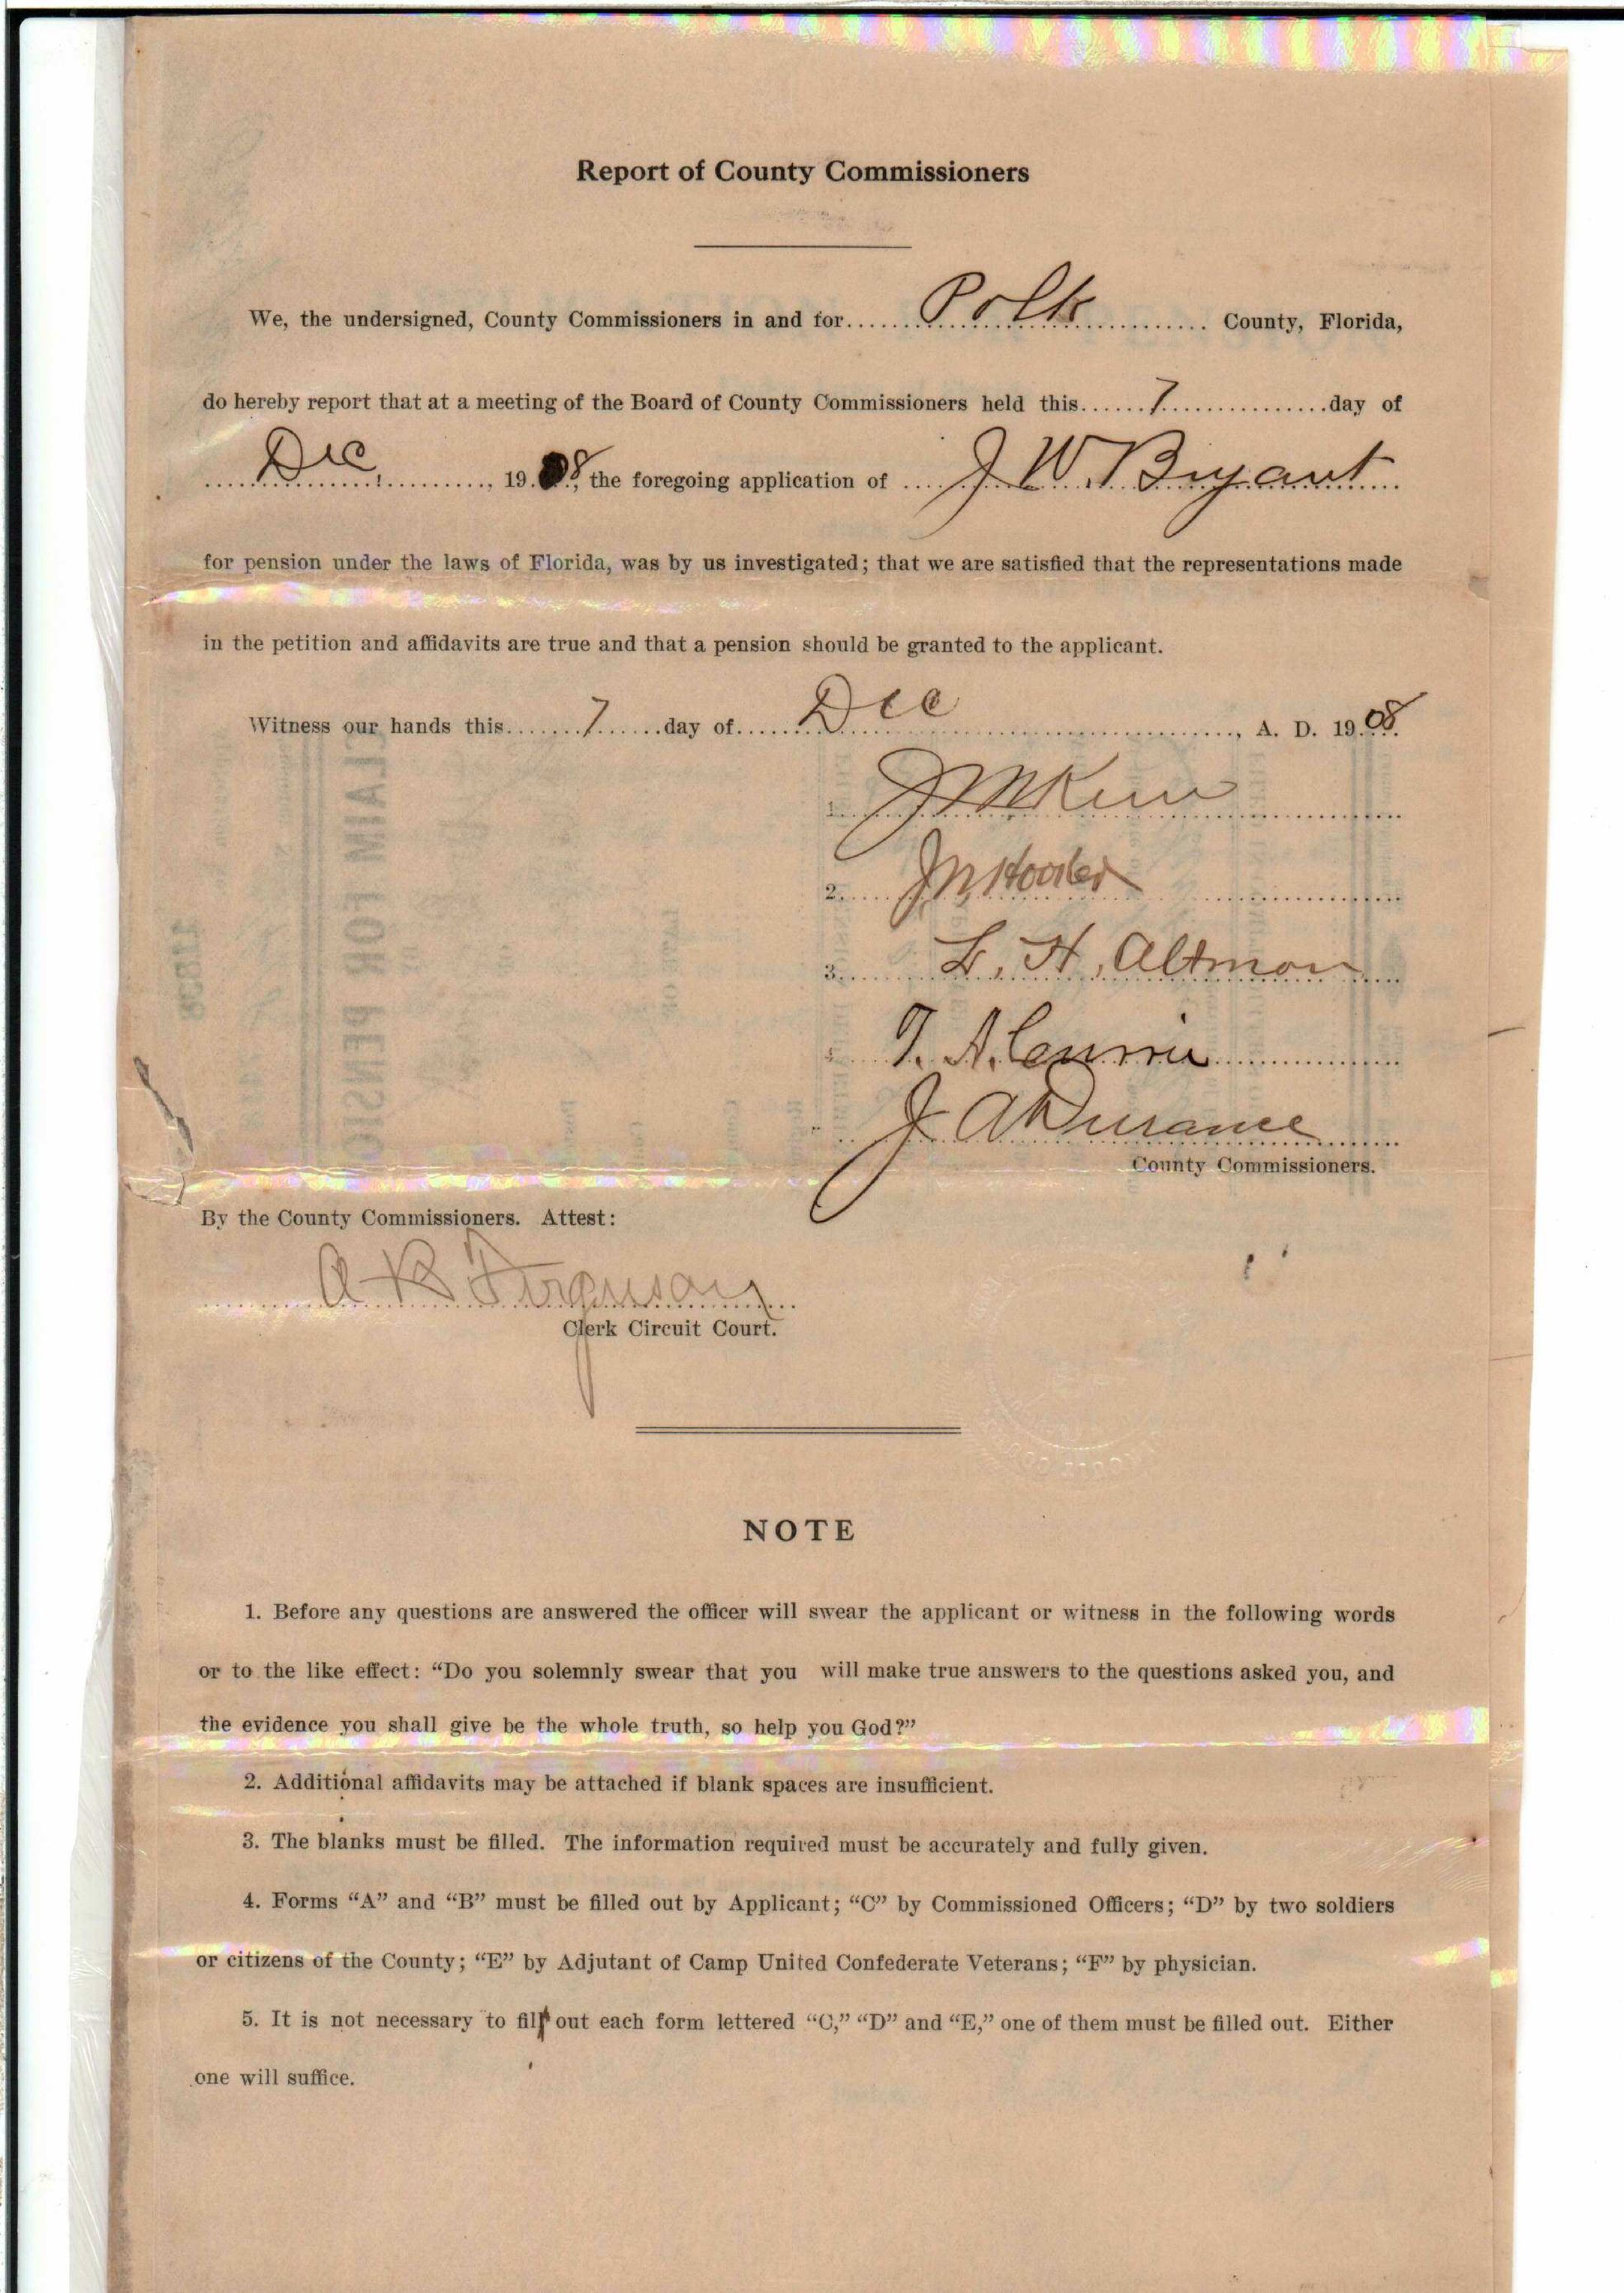 Report of County Commissioners
We, the undersigned, County Commissioners in and for Polk County, Florida,
do hereby report that at a meeting of the Board of County Commissioners held this 7 day of
Dec, 1908, the foregoing application of J W. Bryant
for pension under the laws of Florida, was by us investigated; that we are satisfied that the representations made
in the petition and affidavits are true and that a pension should be granted to the applicant.
Witness our hands this 7 day of Dec, A. D. 1908.
2. J N Hooker
3. L. H. Altman
T. A. Currie
J A Durance
County Commissioners.
By the County Commissioners. Attest:
A B Ferguson
Clerk Circuit Court.
NOTE
1. Before any questions are answered the officer will swear the applicant or witness in the following words
or to the like effect: “Do you solemnly swear that you will make true answers to the questions asked you, and
the evidence you shall give be the whole truth, so help you God?”
2. Additional affidavits may be attached if blank spaces are insufficient.
3. The blanks must be filled. The information required must be accurately and fully given.
4. Forms “A” and “B” must be filled out by Applicant; “C” by Commissioned Officers; “D” by two soldiers
or citizens of the County; “E” by Adjutant of Camp United Confederate Veterans; “F” by physician.
5. It is not necessary to fill out each form lettered “C,” “D” and “E,” one of them must be filled out. Either
one will suffice.